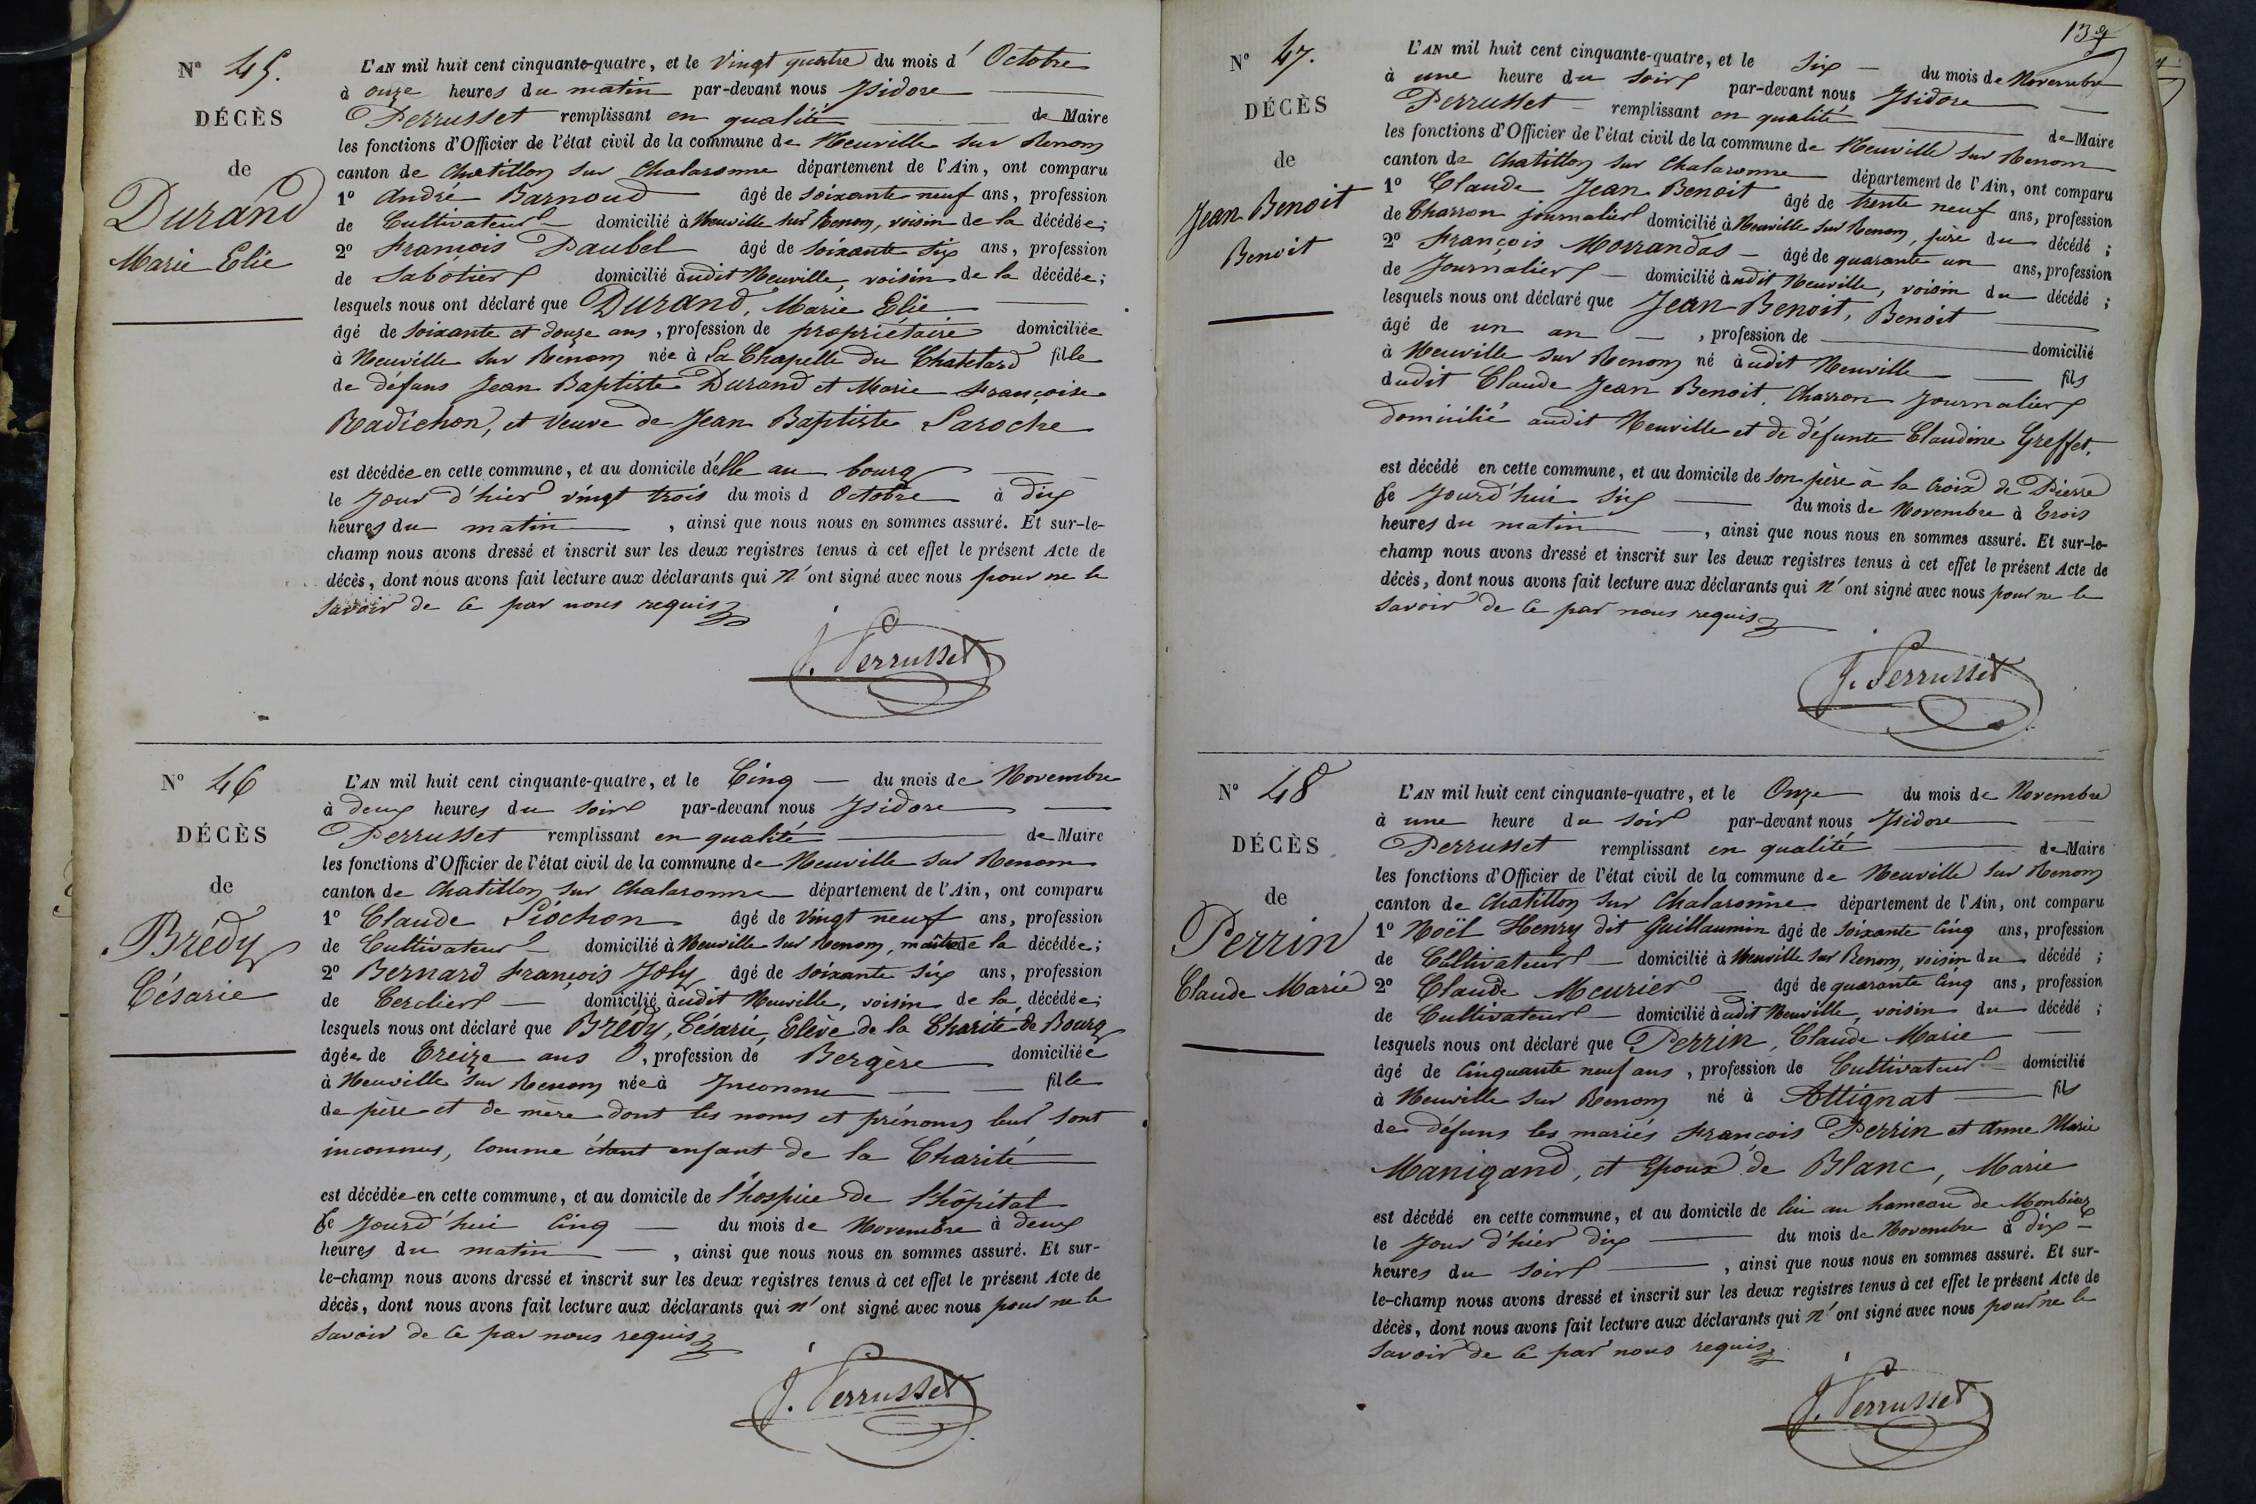 N° 45.
DÉCÈS
de
Durand
Marie Elie
L'AN mil huit cent cinquante-quatre, et le Vingt quatre du mois d'Octobre
à onze heures du matin par-devant nous Isidore
Perrusset remplissant en qualité de Maire
les fonctions d'Officier de l'état civil de la commune de Neuville sur Renom
canton de Chatillon sur Chalaronne département de l'Ain, ont comparu
1° André Barnoud âgé de soixante neuf ans, profession
de Cultivateur domicilié à Neuville sur Renom, voisin de la décédée;
2° François Paubel âgé de soixante six ans, profession
de Sabotier domicilié audit Neuville, voisin de la décédée;
lesquels nous ont déclaré que Durand, Marie Elie
âgé de soixante et douze ans, profession de propriétaire domiciliée
à Neuville sur Renom née à La Chapelle du Chatelard fille
de défuns Jean Baptiste Durand et Marie Françoise
Radichon, et Veuve de Jean Baptiste Laroche
est décédée en cette commune, et au domicile d'elle au bourg
le Jour d'hier vingt trois du mois d Octobre à dix
heures du matin, ainsi que nous nous en sommes assuré. Et sur-le-
champ nous avons dressé et inscrit sur les deux registres tenus à cet effet le présent Acte de
décès, dont nous avons fait lecture aux déclarants qui n'ont signé avec nous pour ne le
savoir de ce par nous requis
J. Perrusset
N° 46
DÉCÈS
de
Brédy
Césarie
L'AN mil huit cent cinquante-quatre, et le Cinq du mois de Novembre
à deux heures du soir par-devant nous Isidore
Perrusset remplissant en qualité de Maire
les fonctions d'Officier de l'état civil de la commune de Neuville sur Renom
canton de Chatillon sur Chalaronne département de l'Ain, ont comparu
1° Claude Liochon âgé de Vingt neuf ans, profession
de Cultivateur domicilié à Neuville sur Renom, maître de la décédée;
2° Bernard François Joly âgé de soixante six ans, profession
de Cerclier domicilié audit Neuville, voisin de la décédée;
lesquels nous ont déclaré que Brédy, Césarie, Elève de la Charité de Bourg
âgée de Treize ans, profession de Bergère domiciliée
à Neuville sur Renom née à Inconnu fille
de père et de mère dont les noms et prénoms leur sont
inconnus, comme étant enfant de la Charité
est décédée en cette commune, et au domicile de l'hospice de l'hôpital
Ce Jourd'hui Cinq du mois de Novembre à deux
heures du matin, ainsi que nous nous en sommes assuré. Et sur-
le-champ nous avons dressé et inscrit sur les deux registres tenus à cet effet le présent Acte de
décès, dont nous avons fait lecture aux déclarants qui n'ont signé avec nous pour ne le
savoir de ce par nous requis
J. Perrusset
139
N° 47.
DÉCÈS
de
Jean Benoit
Benoit
L'AN mil huit cent cinquante-quatre, et le Six du mois de Novembre
à une heure du soir par-devant nous Isidore
Perrusset remplissant en qualité de Maire
les fonctions d'Officier de l'état civil de la commune de Neuville sur Renom
canton de Chatillon sur Chalaronne département de l'Ain, ont comparu
1° Claude Jean Benoit âgé de trente neuf ans, profession
de Charron journalier domicilié à Neuville sur Renom, père du décédé;
2° François Morrandas âgé de quarante un ans, profession
de Journalier domicilié audit Neuville, voisin du décédé;
lesquels nous ont déclaré que Jean Benoit, Benoit
âgé de un an, profession de domicilié
à Neuville sur Renom né audit Neuville fils
dudit Claude Jean Benoit, Charron Journalier
domicilié audit Neuville et de défunte Claudine Greffet.
est décédé en cette commune, et au domicile de son père à la Croix de Pierre
Ce Jourd'hui six du mois de Novembre à Trois
heures du matin, ainsi que nous nous en sommes assuré. Et sur-le-
champ nous avons dressé et inscrit sur les deux registres tenus à cet effet le présent Acte de
décès, dont nous avons fait lecture aux déclarants qui n'ont signé avec nous pour ne le
savoir de ce par nous requis
J. Perrusset
N° 48
DÉCÈS
de
Perrin
Claude Marie
L'AN mil huit cent cinquante-quatre, et le Onze du mois de Novembre
à une heure du soir par-devant nous Isidore
Perrusset remplissant en qualité de Maire
les fonctions d'Officier de l'état civil de la commune de Neuville sur Renom
canton de Chatillon sur Chalaronne département de l'Ain, ont comparu
1° Noël Henry dit Guillaumin âgé de soixante cinq ans, profession
de Cultivateur domicilié à Neuville sur Renom, voisin du décédé;
2° Claude Meurier âgé de quarante cinq ans, profession
de Cultivateur domicilié audit Neuville, voisin du décédé;
lesquels nous ont déclaré que Perrin, Claude Marie
âgé de Cinquante neuf ans, profession de Cultivateur domicilié
à Neuville sur Renom né à Attignat fils
de défuns les mariés François Perrin et Anne Marie
Manigand, et Epoux de Blanc, Marie
est décédé en cette commune, et au domicile de lui au hameau de Monbiaz
le Jour d'hier dix du mois de Novembre à dix
heures du soir, ainsi que nous nous en sommes assuré. Et sur-
le-champ nous avons dressé et inscrit sur les deux registres tenus à cet effet le présent Acte de
décès, dont nous avons fait lecture aux déclarants qui n'ont signé avec nous pour ne le
savoir de ce par nous requis
J. Perrusset